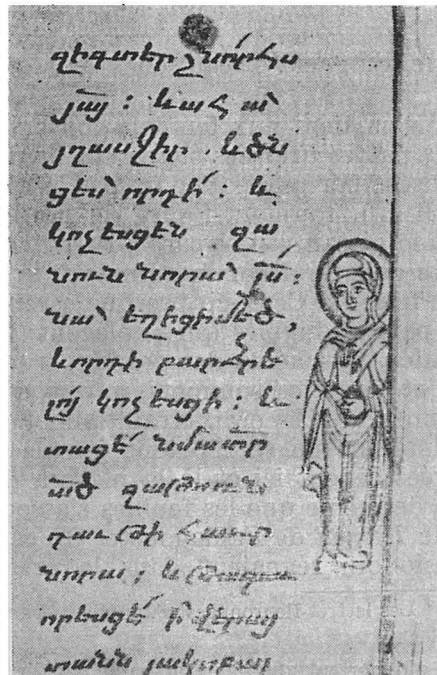 զի գտեր շնորհս
յա՟յ : և ահա
յղասջիր . և ծն
ցես որդի : և
կոչեսցեն զա
նուն նորա յս՟ :
նա եղիցի մեծ,
և որդի բարձրե
լոյ կոչեսցի : և
տացէ նմա տր՟
ած՟ զաթոռն
դաւթի հաւր
նորա : և թագաւ
որեսցէ ի վերայ
տանն յակոբայ